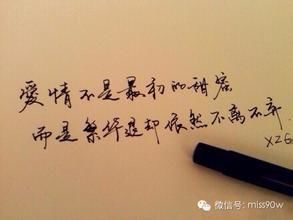 愛情不是最初的甜蜜
而是繁华退却依然不离不弃.
XZG
微信号: miss90w